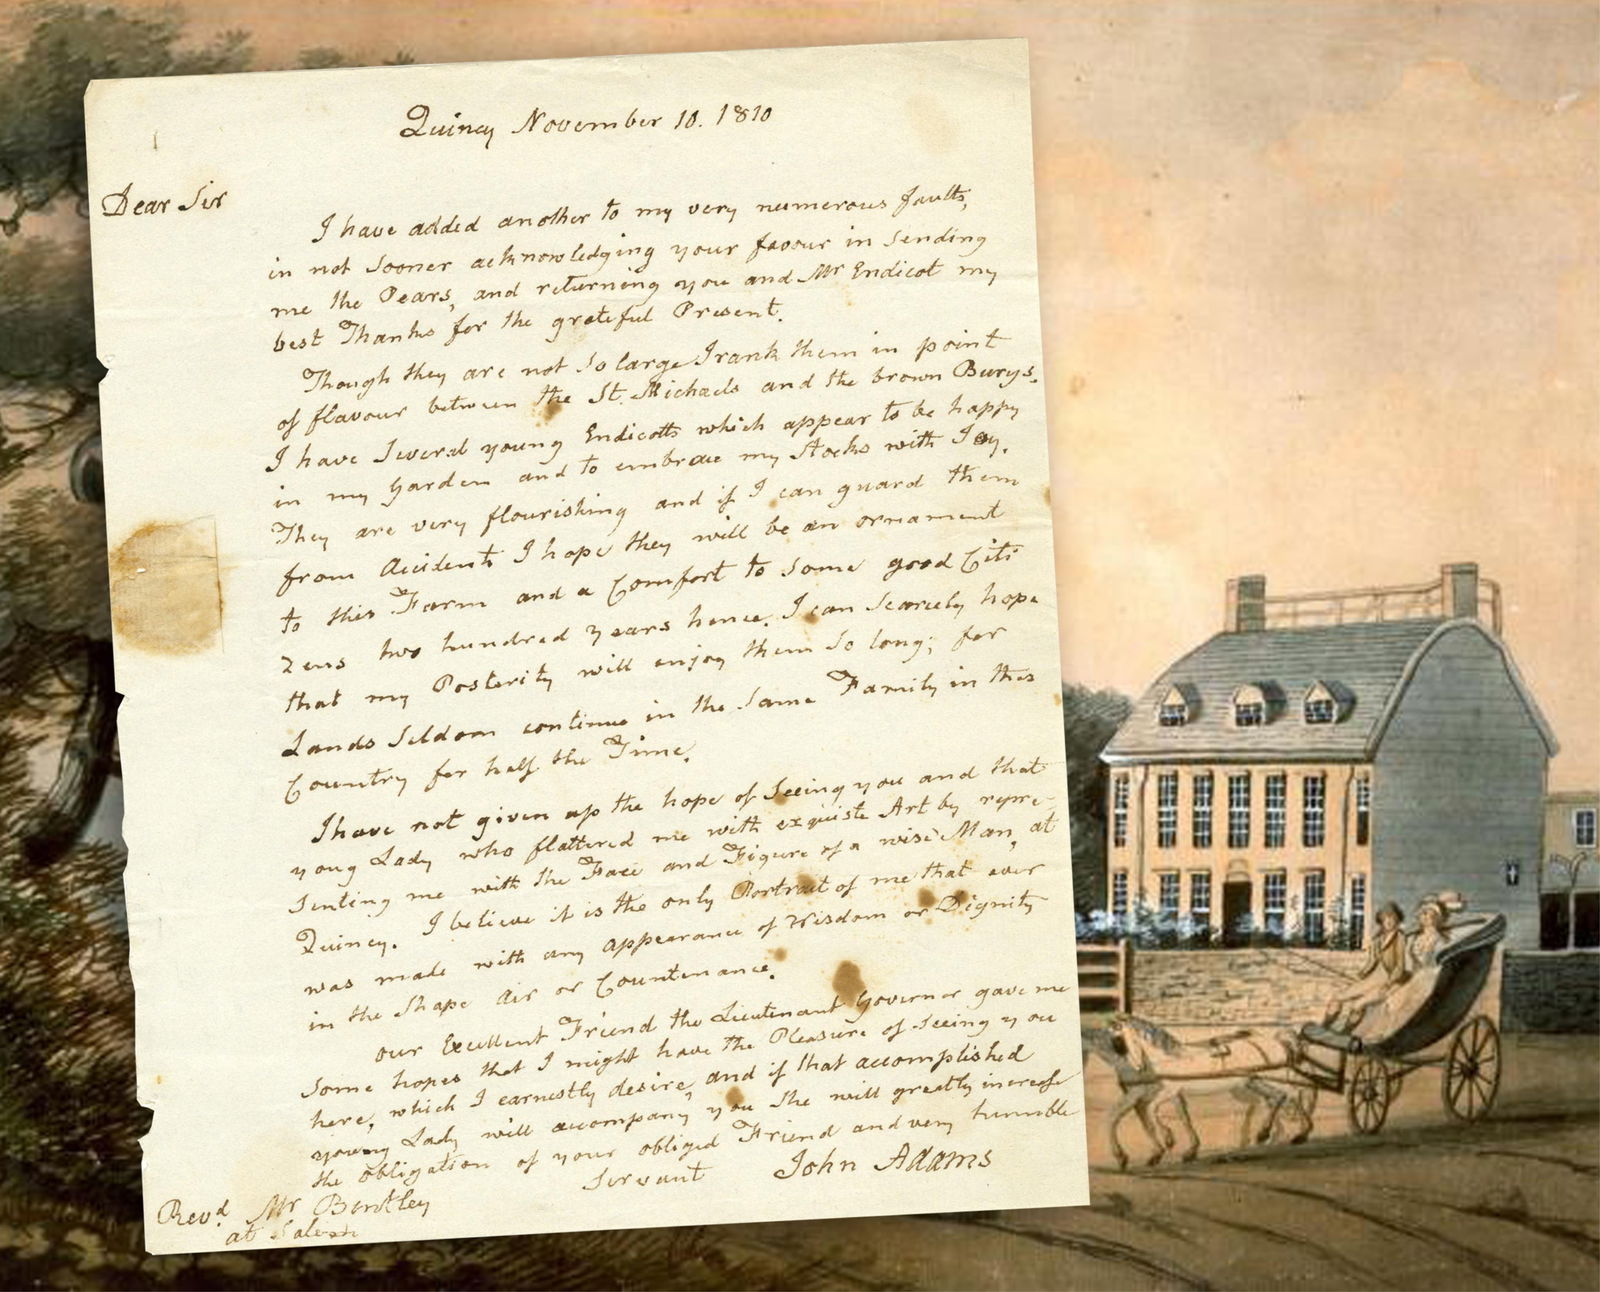 Quincy November 10. 1810
Dear Sir
I have added another to my very numerous faults,
in not sooner acknowledging your favour in sending
me the Pears, and returning you and Mr Endicot my
best Thanks for the grateful Present.
Though they are not so large I rank them in point
of flavour between the St. Michaels and the brown Burys.
I have several young Endicotts which appear to be happy
in my Garden and to embrace my Stocks with Joy.
They are very flourishing and if I can guard them
from Accidents I hope they will be an ornament
to this Farm and a Comfort to some good Citi
zens two hundred years hence. I can scarcely hope
that my Posterity will enjoy them so long; for
Lands seldom continue in the same Family in this
Country for half the Time.
I have not given up the hope of seeing you and that
youg Lady who flattered me with exquisite Art by repre-
senting me with the Face and Figure of a wise Man, at
Quincy. I believe it is the only Portrait of me that ever
was made with any appearance of Wisdom or Dignity
in the Shape Air or Countenance.
our Excellent Friend the Lieutenant Governor gave me
some hopes that I might have the Pleasure of seeing you
here, which I earnestly desire, and if that accomplished
young Lady will accompany you She will greatly increase
the obligation of your obliged Friend and very humble
Servant John Adams
Revd. Mr Bentley
at Salem